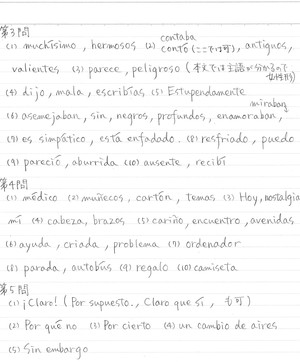 第3問
contaba
(1) muchísimo, hermosos (2) contó (ここでは可), antiguos,
valientes (3) parece, peligroso (本文では主語が分かるので
女性形)
(4) dijo, mala, escribías (5) Estupendamente
miraba
(6) asemejaban, sin, negros, profundos, enamoraban,
(7) es simpático, está enfadado. (8) resfriado, puedo
(9) pareció, aburrida (10) ausente, recibí
第4問
(1) médico (2) muñecos, cartón, temas (3) Hoy, nostalgia
mí (4) cabeza, brazos (5) cariño, encuentro, avenidas
(6) ayuda, criada, problema (7) ordenador
(8) parada, autobús (9) regalo (10) camiseta
第5問
(1) ¡Claro! (Por supuesto., Claro que sí, も可)
(2) Por qué no (3) Por cierto (4) un cambio de aires
(5) Sin embargo